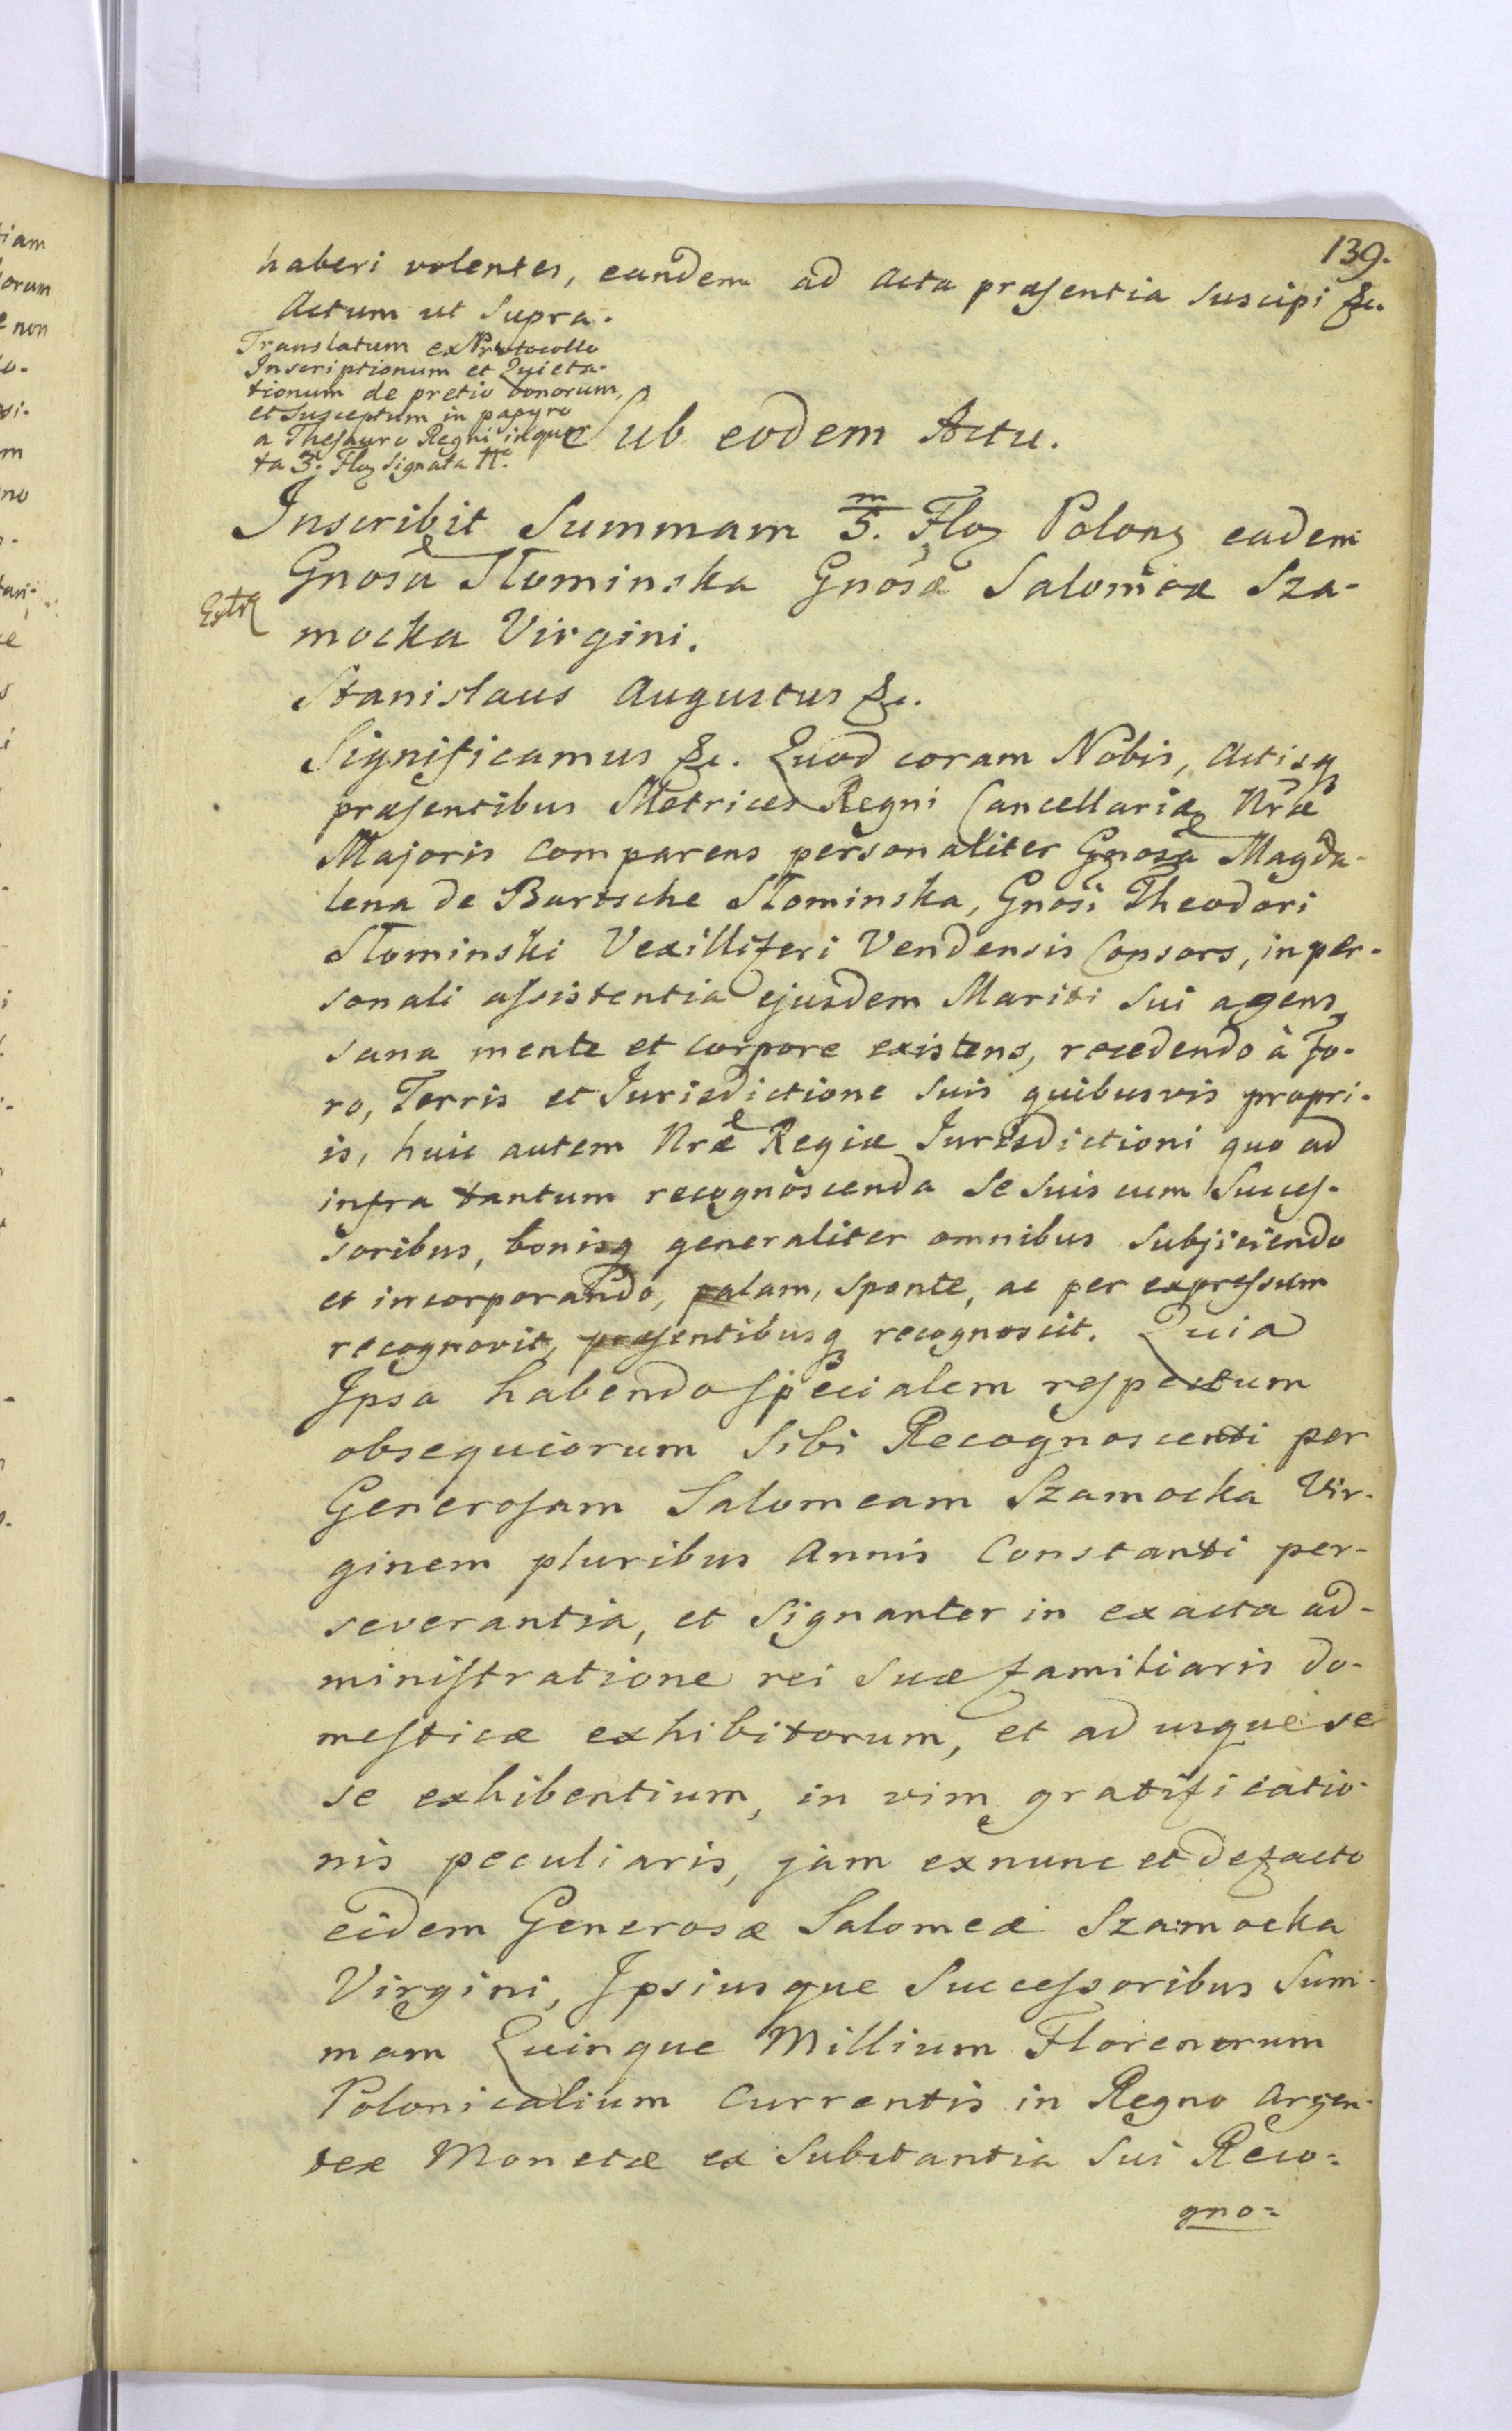 139.
haberi volentes, eandem ad Acta præsentia suscipi &c.
Actum ut Supra.
Translatum ex Protocollo
Inscriptionum et Quieta-
tionum de pretio bonorum,
et Susceptum in papyro
a Thesauro Regni in quar
ta 3. Flor signata
Sub eodem Actu.
Inscribit Summam 5. m Flor Polon eadem
Gnosa Słominska Gnosæ Salomeæ Sza-
mocka Virgini.
Extr
Stanislaus Augustus &c.
Significamus &c. Quod coram Nobis, Actisq
præsentibus Metrices Regni Cancellariæ Nræ
Majoris Comparens personaliter Gnosa Magda-
lena de Bartsche Słominska, Gnosi Theodori
Słominski Vexilliferi Vendensis Consors, in per-
sonali assistentia ejusdem Mariti Sui agens,
sana mente et corpore existens, recedendo à fo-
ro, Terris et Jurisdictione Suis quibusvis propri-
is, huic autem Nræ Regiæ Jurisdictioni quo ad
infra tantum recognoscenda Se Suis cum Succes-
soribus, bonisq generaliter omnibus Subjiciendo
et incorporando, palam, sponte, ac per expressum
recognovit, præsentibusq recognoscit. Quia
Ipsa habendo specialem respectum
obsequiorum Sibi Recognoscenti per
Generosam Salomeam Szamocka Vir-
ginem pluribus Annis Constanti per-
severantia, et Signanter in exacta ad-
ministratione rei Suæ familiaris do-
mesticæ exhibitorum, et ad usque se
se exhibentium, in vim gratificatio-
nis peculiaris, jam exnunc et defacto
eidem Generosæ Salomeæ Szamocka
Virgini, Ipsiusque Successoribus Sum-
mam Quinque Millium Florenorum
Polonicalium Currentis in Regno Argen-
teæ Monetæ ex Substantia Sui Reco=
gno=